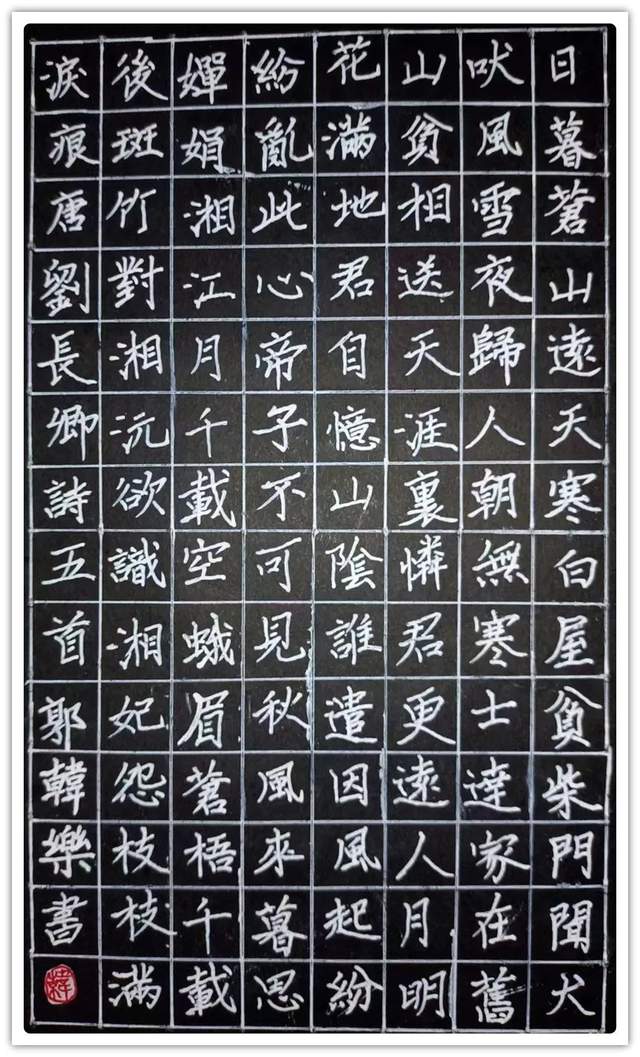 日暮蒼山遠天寒白屋貧柴門聞犬
吠風雪夜歸人朝無寒士達家在舊
山貧相送天涯裏憐君更遠人月明
花滿地君自憶山陰誰遣因風起紛
紛亂此心帝子不可見秋風來暮思
嬋娟湘江月千載空蛾眉蒼梧千載
後斑竹對湘沅欲識湘妃怨枝枝滿
淚痕唐劉長卿詩五首郭韓樂書